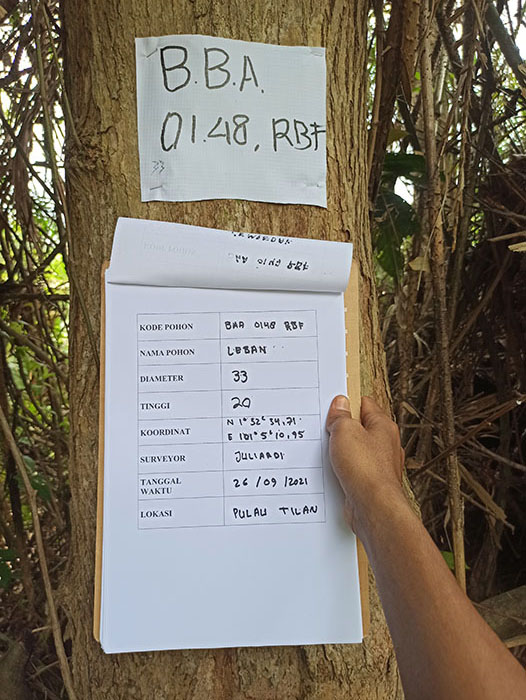 B.B.A.
01.48, RBF
33
KODE POHON BAA 0148 RBF
NAMA POHON LEBAN
DIAMETER 33
TINGGI 20
KOORDINAT N 1° 32' 34,71
E 101° 5' 10,95
SURVEYOR JULIARDI
TANGGAL WAKTU 26 / 09 / 2021
LOKASI PULAU TILAN